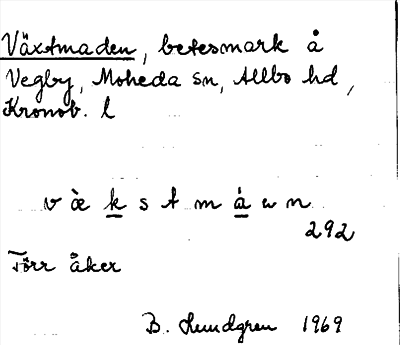 Växtmaden, betesmark å
Vegby, Moheda sn, Allbo hd,
Kronob. l
v æ̀ k s t m á w n
292
Törr åker
B. Lundgren 1969